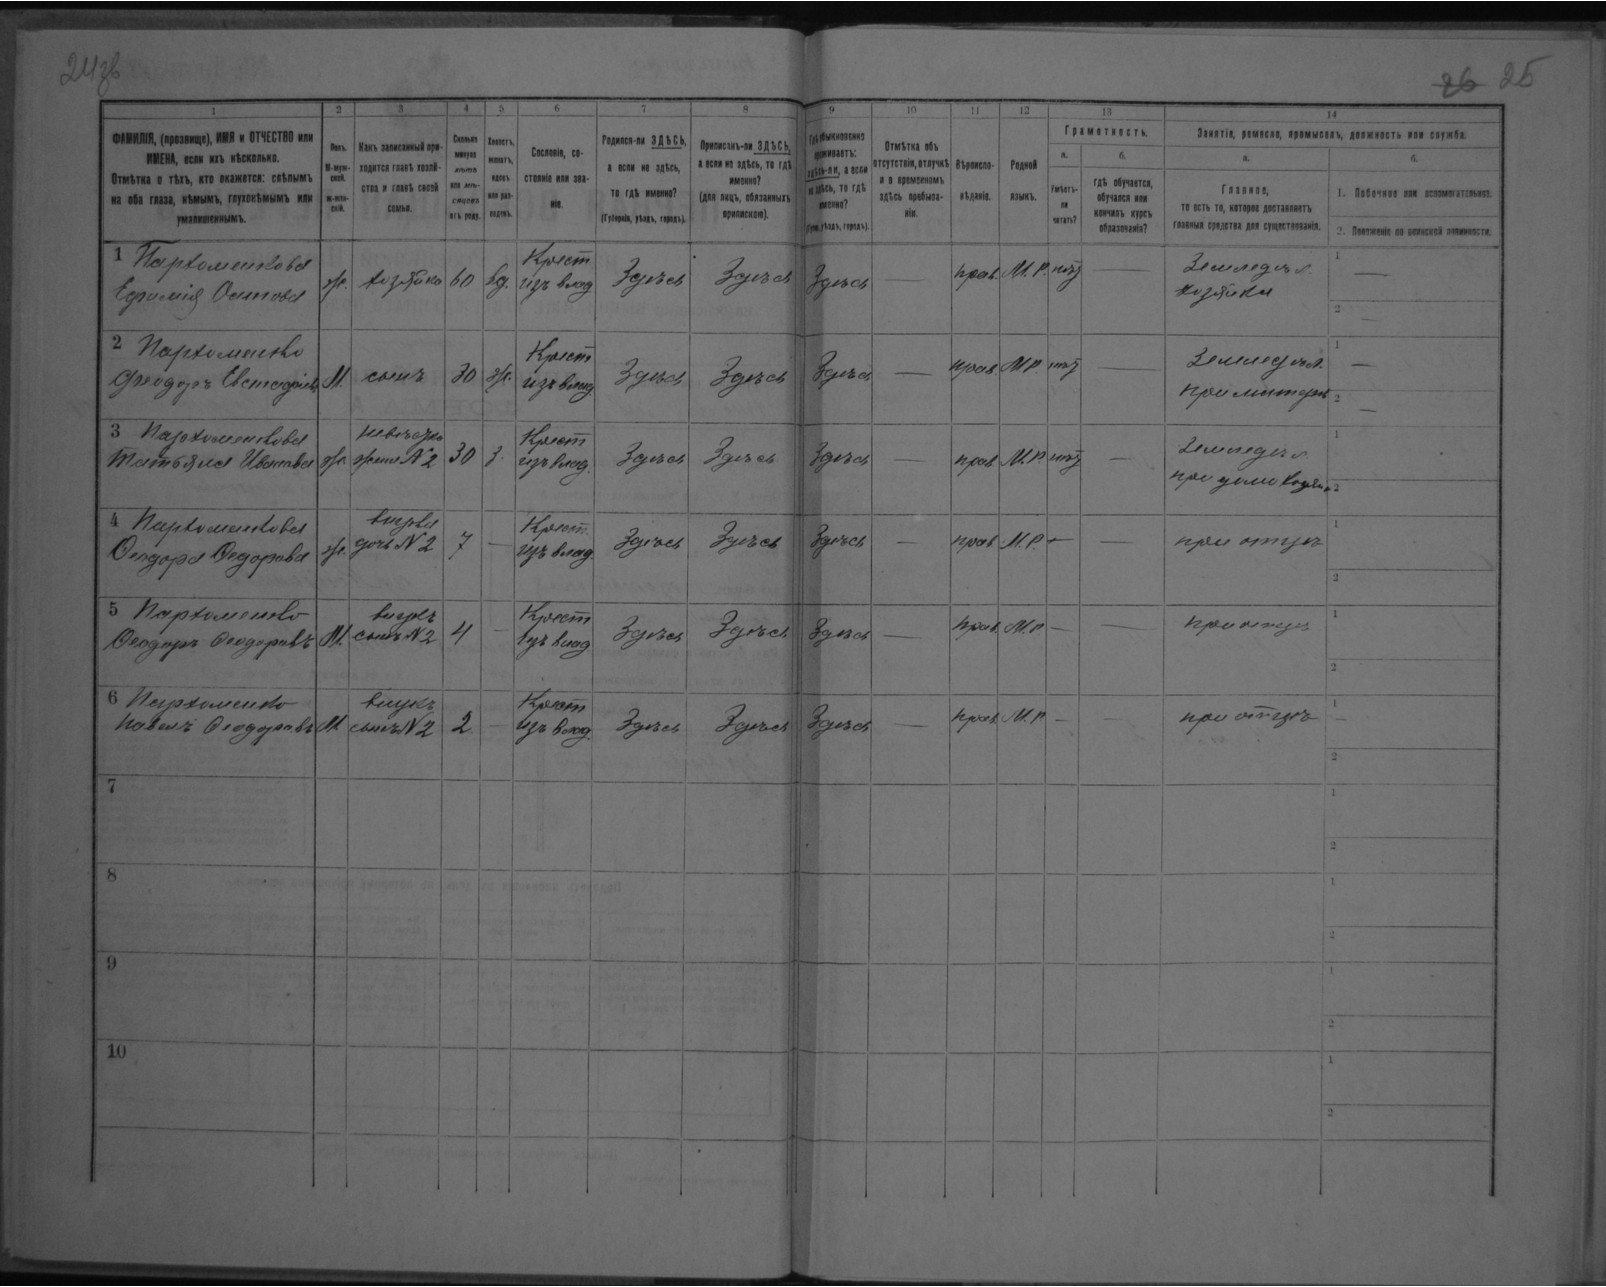 24зв
26 25
1 2 3 4 5 6 7 8 9 10 11 12 13 14
ФАМИЛІЯ, (прозвище), ИМЯ и ОТЧЕСТВО или
ИМЕНА, если ихъ нѣсколько.
Отмѣтка о тѣхъ, кто окажется: слѣпымъ
на оба глаза, нѣмымъ, глухонѣмымъ или
умалишеннымъ.
Полъ.
М-муж-
ской.
Ж-жен-
скій.
Какъ записанный при-
ходится главѣ хозяй-
ства и главѣ своей
семьи.
Сколько
минуло
лѣтъ
или мѣ-
сяцевъ
отъ роду.
Холостъ,
женатъ,
вдовъ
или раз-
веденъ.
Сословіе, со-
стояніе или зва-
ніе.
Родился-ли ЗДѢСЬ,
а если не здѣсь,
то гдѣ именно?
(Губернія, уѣздъ, городъ).
Приписанъ-ли ЗДѢСЬ,
а если не здѣсь, то гдѣ
именно?
(для лицъ, обязанныхъ
припискою).
Гдѣ обыкновенно
проживаетъ:
здѣсь-ли, а если
не здѣсь, то гдѣ
именно?
(Губ., уѣздъ, городъ).
Отмѣтка объ
отсутствіи, отлучкѣ
и о временномъ
здѣсь пребыва-
ніи.
Вѣроиспо-
вѣданіе.
Родной
языкъ.
Грамотность.
а.
Умѣетъ-
ли
читать?
б.
гдѣ обучается,
обучался или
кончилъ курсъ
образованія?
Занятіе, ремесло, промыселъ, должность или служба.
а.
Главное,
то есть то, которое доставляетъ
главныя средства для существованія.
б.
1. Побочное или вспомогательное.
2. Положеніе по воинской повинности.
1 Пархоменкова ж. хозяйка 60 вд. Крест
Ефимія Осипова изъ влад Здѣсь Здѣсь Здѣсь — прав. М.Р. нѣтъ — Земледѣл. 1 —
хозяйка 2 —
2 Пархоменко М. сынъ 30 ж. Крест
Феодоръ Евстафіевъ изъ влад. Здѣсь Здѣсь Здѣсь — прав. М.Р. нѣтъ — Земледѣл. 1 —
при матери 2 —
3 Пархоменкова ж. невѣстка 30 з. Крест
Татьяна Иванова жена №2 изъ влад. Здѣсь Здѣсь Здѣсь — прав. М.Р. нѣтъ — Земледѣл. 1
2
4 Пархоменкова ж. внучка 7 — Крест.
Феодора Федорова дочь №2 изъ влад. Здѣсь Здѣсь Здѣсь — прав. М.Р. — — при отцѣ 1
2
5 Пархоменко М. внукъ 4 — Крест
Феодоръ Феодоровъ сынъ №2 изъ влад Здѣсь Здѣсь Здѣсь — прав. М.Р. — — при отцѣ 1
2
6 Пархоменко М. внукъ 2 — Крест
Павелъ Феодоровъ сынъ №2 изъ влад. Здѣсь Здѣсь Здѣсь — прав. М.Р. — — при отцѣ 1 —
2
7 1
2
8 1
2
9 1
2
10 1
2